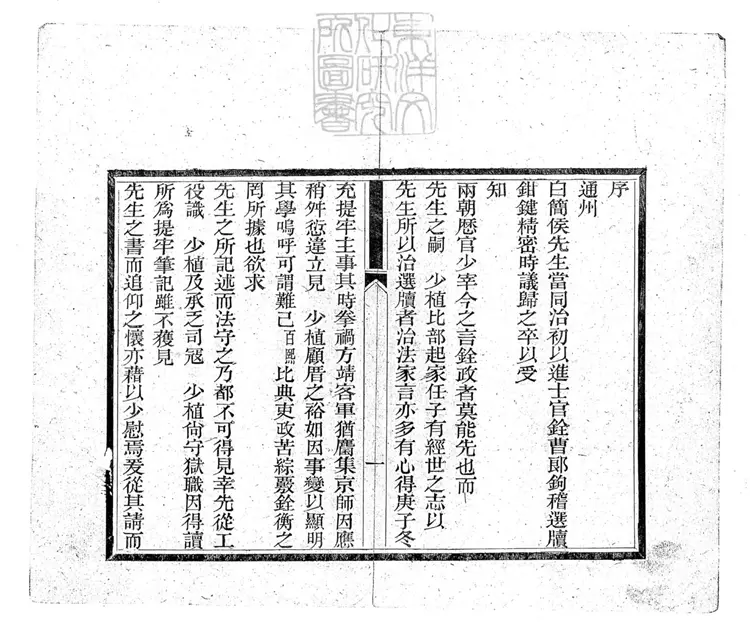 東洋文
化研究
所圖書
序
通州
白簡侯先生當同治初以進士官銓曹郞鉤稽選牘
鉗鍵精密時議歸之卒以受
知
兩朝厯官少宰今之言銓政者莫能先也而
先生之嗣 少植比部起家任子有經世之志以
先生所以治選牘者治法家言亦多有心得庚子冬
一
充提牢主事其時拳禍方靖客軍猶麕集京師因應
稍舛愆違立見 少植顧厝之裕如因事變以顯明
其學嗚呼可謂難已百熙比典吏政苦綜覈銓衡之
罔所據也欲求
先生之所記述而法守之乃都不可得見幸先從工
役識 少植及承乏司寇 少植尙守獄職因得讀
所爲提牢筆記雖不獲見
先生之書而追仰之懷亦藉以少慰焉爰從其請而